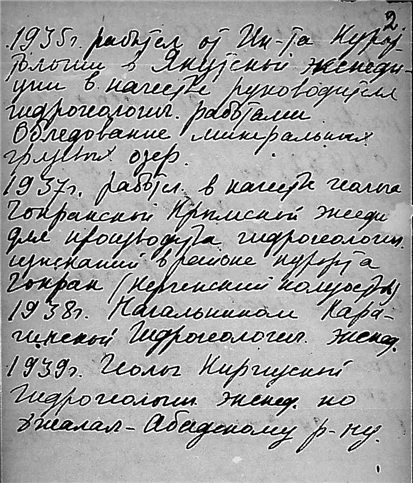 2
1935г. работал от Ин-та Курор
тологии в Якутской экспеди-
ции в качестве руководителя
гидрогеологич. работами
Обледование минеральных
грязевых озер.
1937г. работ. в качестве геолога
Чокракской Крымской экспед
для производства гидрогеологич.
изысканий в районе курорта
Чокрак (Керченский полуостров)
1938г. Начальником Кара-
гинской Гидрогеологич. экспед.
1939г. Геолог Киргизской
Гидрогеологич. экспед. по
Джалал-Абадскому р-ну.